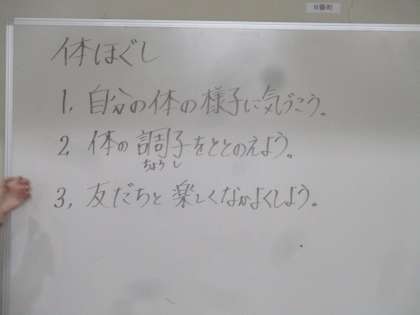 体ほぐし
1, 自分の体の様子に気づこう。
2, 体の調子をととのえよう。
ちょうし
3, 友だちと楽しくなかよくしよう。